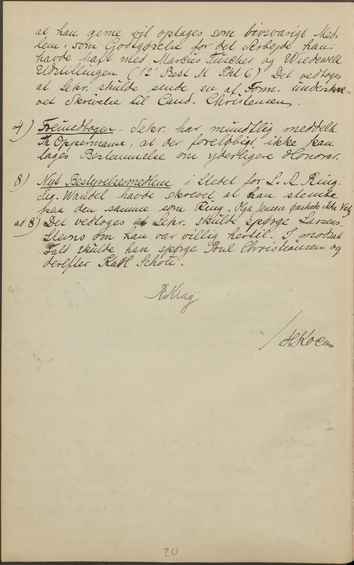 at han gerne vil optages som livsvarigt Med-
lem, som Godtgørelse for det Arbejde han
havde haft med Marcus Fischer og Wiedewelt
Udstillingen (12' Best. M. Pkt 6) Det vedtoges
at Sekr. skulde sende en af Form. underskre-
vet Skrivelse til Cand. Christensen.
7) Sekr. har mundtlig meddelt
Th Oppermann, at der foreløbigt ikke kan
tages Bestemmelse om yderligere Honorar.
8) Nyt Bestyrelsesmedlem i Stedet for L. A. Ring.
Sig. Wandel havde skrevet at han stemte
paa den samme som Ring.
ad 8) Det vedtoges at Sekr. skulde spørge
om han var villig hertil. I modsat
Fald skulde han spørge Poul Christiansen og
derefter
H Koch
20